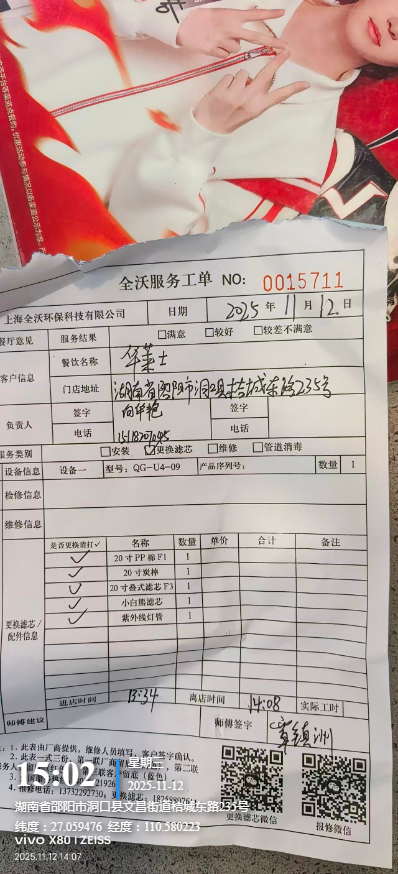 全沃服务工单 NO: 0015711
上海全沃环保科技有限公司 日期 2025年11月12日
餐厅意见 服务结果 □满意 □较好 □较差不满意
客户信息 餐饮名称 华莱士
门店地址 湖南省邵阳市洞口县桔城东路235号
负责人 签字 签字
电话 电话
服务类别 □安装 ☑更换滤芯 □维修 □管道消毒
设备信息 设备一 型号: QG-U4-09 产品序列号: 数量 1
检修信息
维修信息
更换滤芯/配件信息 是否更换请打✓ 名称 数量 单价 合计 备注
✓ 20寸PP棉F1 1
✓ 20寸炭棒 1
✓ 20寸叠式滤芯F3 1
✓ 小白熊滤芯 1
✓ 紫外线灯管 1
进店时间 13:34 离店时间 14:08 实际工时
师傅建议 师傅签字
1. 此表由厂商提供, 维修人员填写, 客户签字确认。
2. 此表一式三份, 第一联厂商
第二联
客户留底(蓝色)
4. 维修电话: 13732292730, 更换滤芯:
更换滤芯微信 报修微信
15:02 星期三
2025-11-12
湖南省邵阳市洞口县文昌街道桔城东路235号
纬度: 27.059476 经度: 110.580223
vivo X80 | ZEISS
2025.11.12 14:07